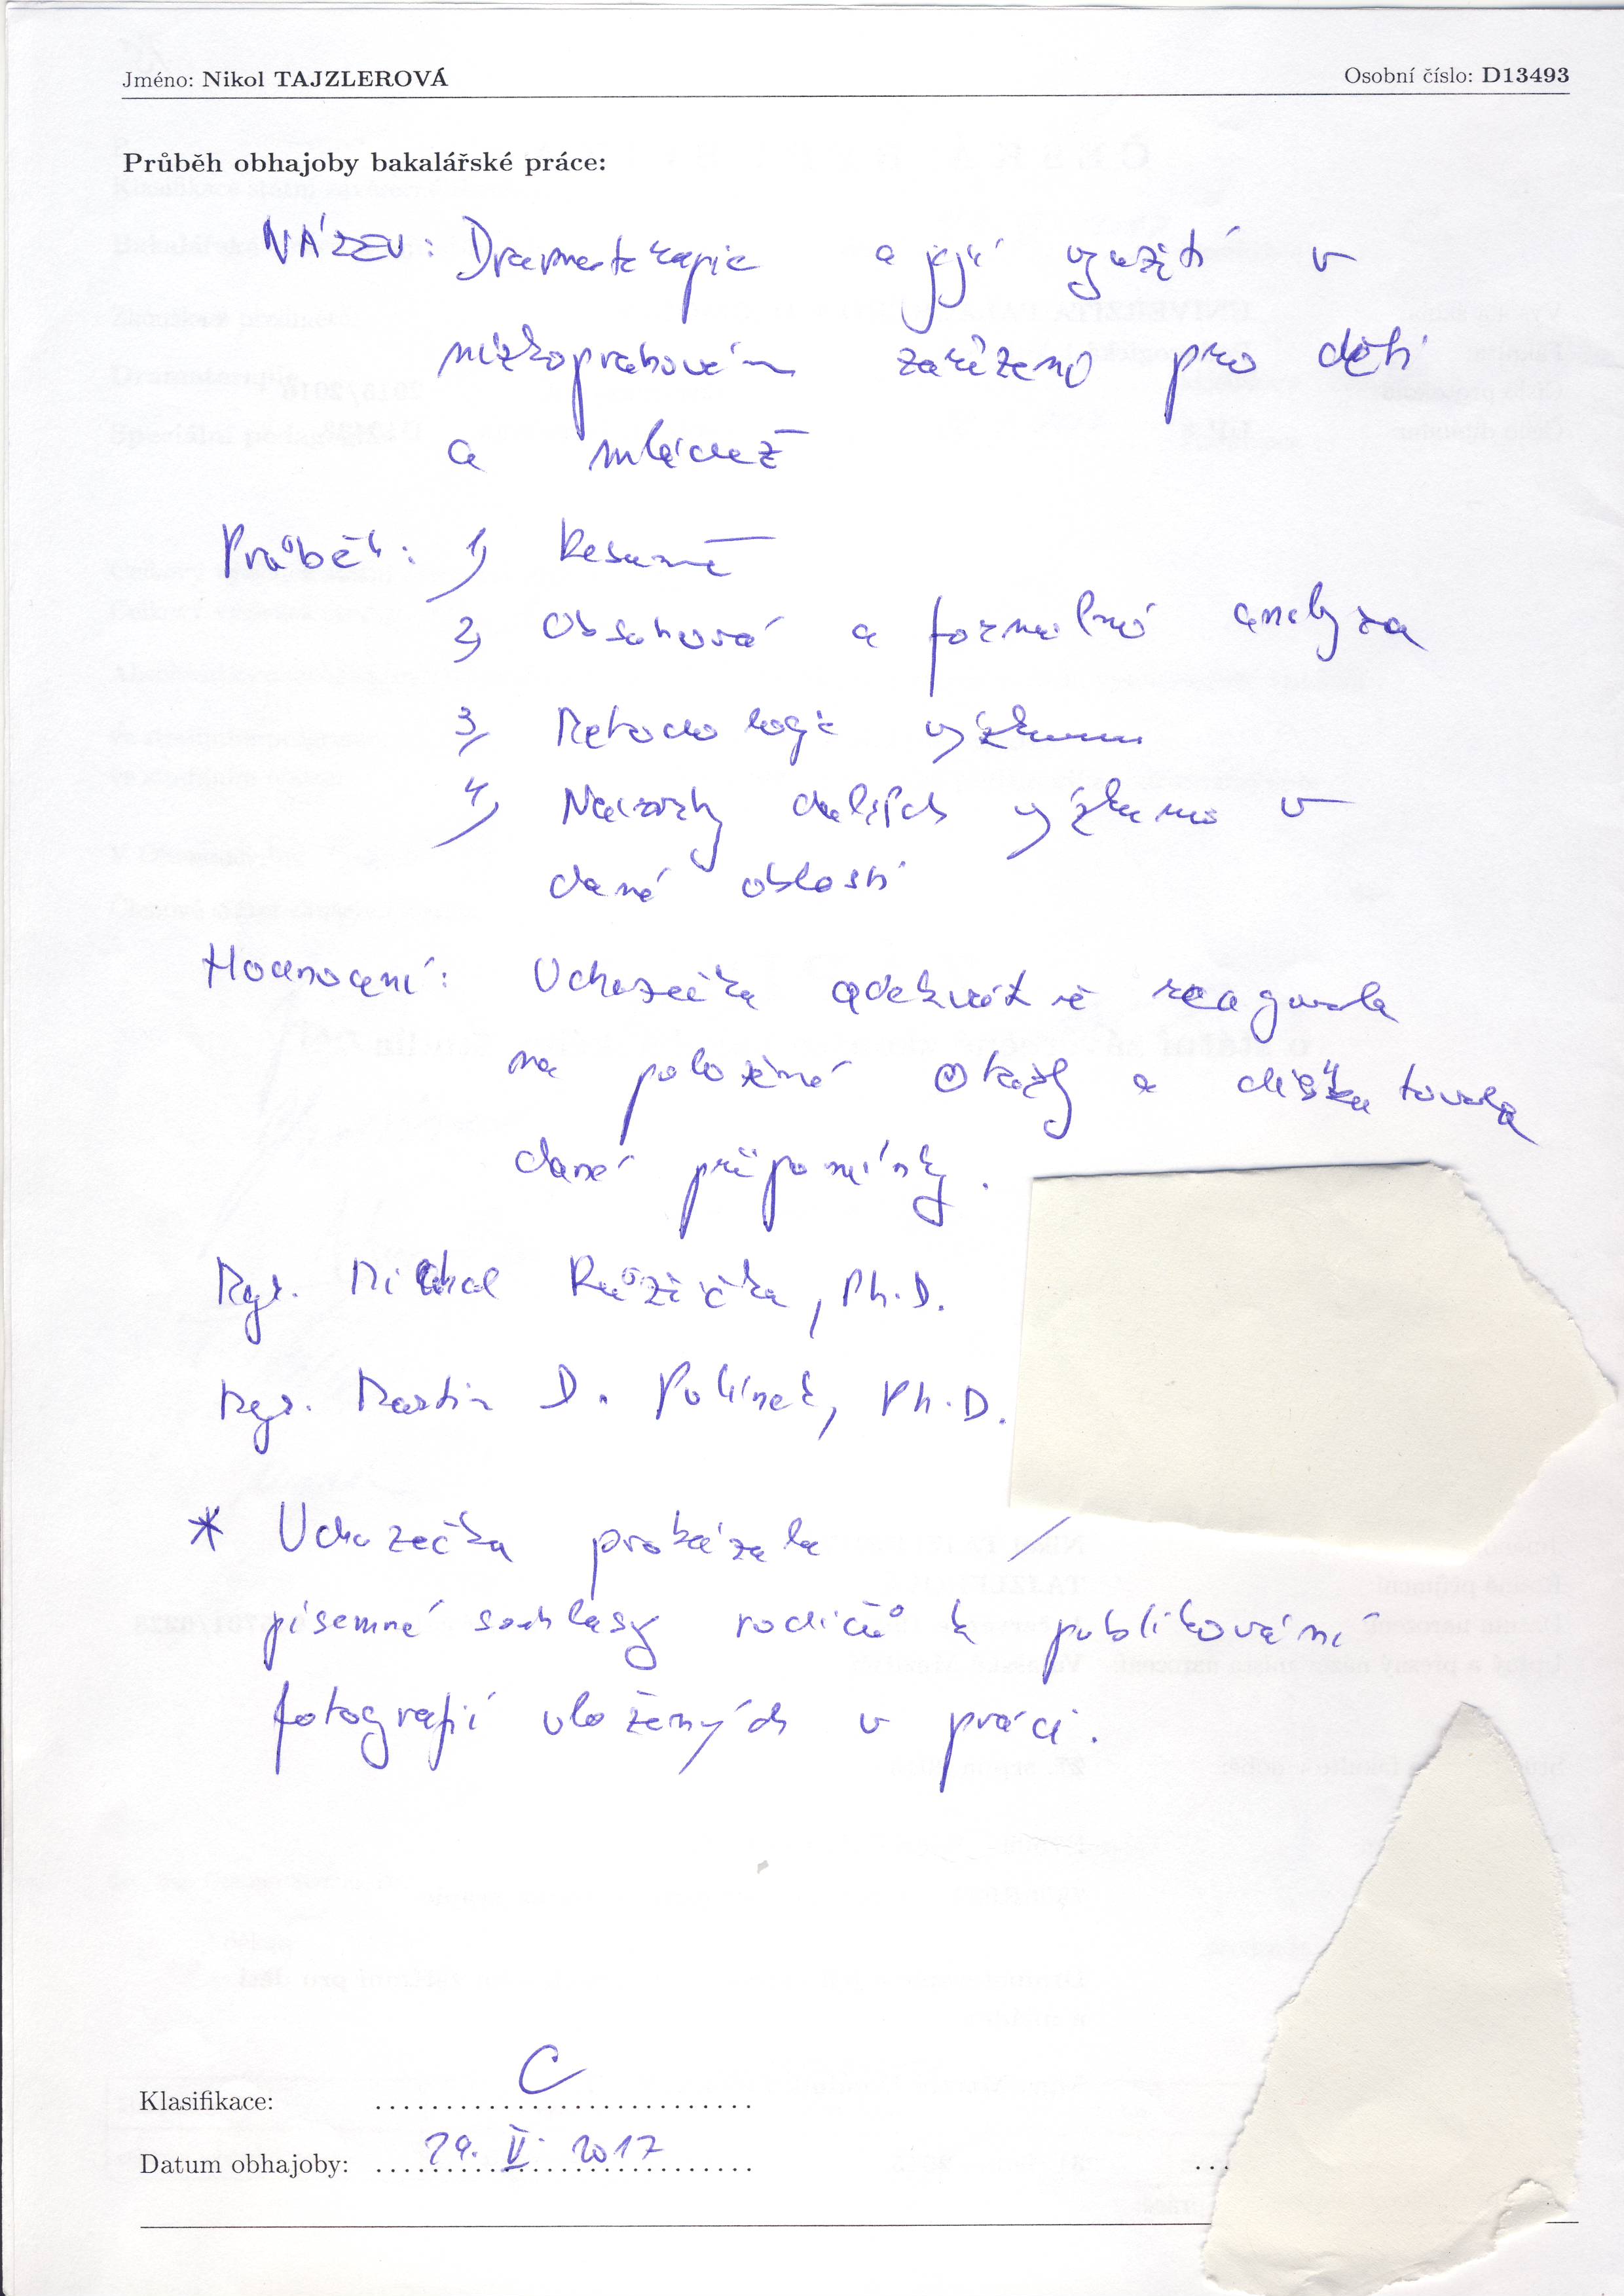 Jméno: Nikol TAJZLEROVÁ Osobní číslo: D13493
Průběh obhajoby bakalářské práce:
NÁZEV: Dramaterapie a její využití v
nízkoprahovém zařízení pro děti
a mládež
Průběh: 1) Resumé
2) Obsahová a formální analýza
3) Metodologie výzkumu
4) Návrhy dalších výzkumů v
dané oblasti
Hodnocení: Uchazečka adekvátně reagovala
na položené otázky a diskutovala
dané připomínky.
Mgr. Michal Růžička, Ph.D.
Mgr. Martin D. Polínek, Ph.D.
* Uchazečka prokázala
písemné souhlasy rodičů k publikování
fotografií vložených v práci.
Klasifikace: C
Datum obhajoby: 29. V. 2017